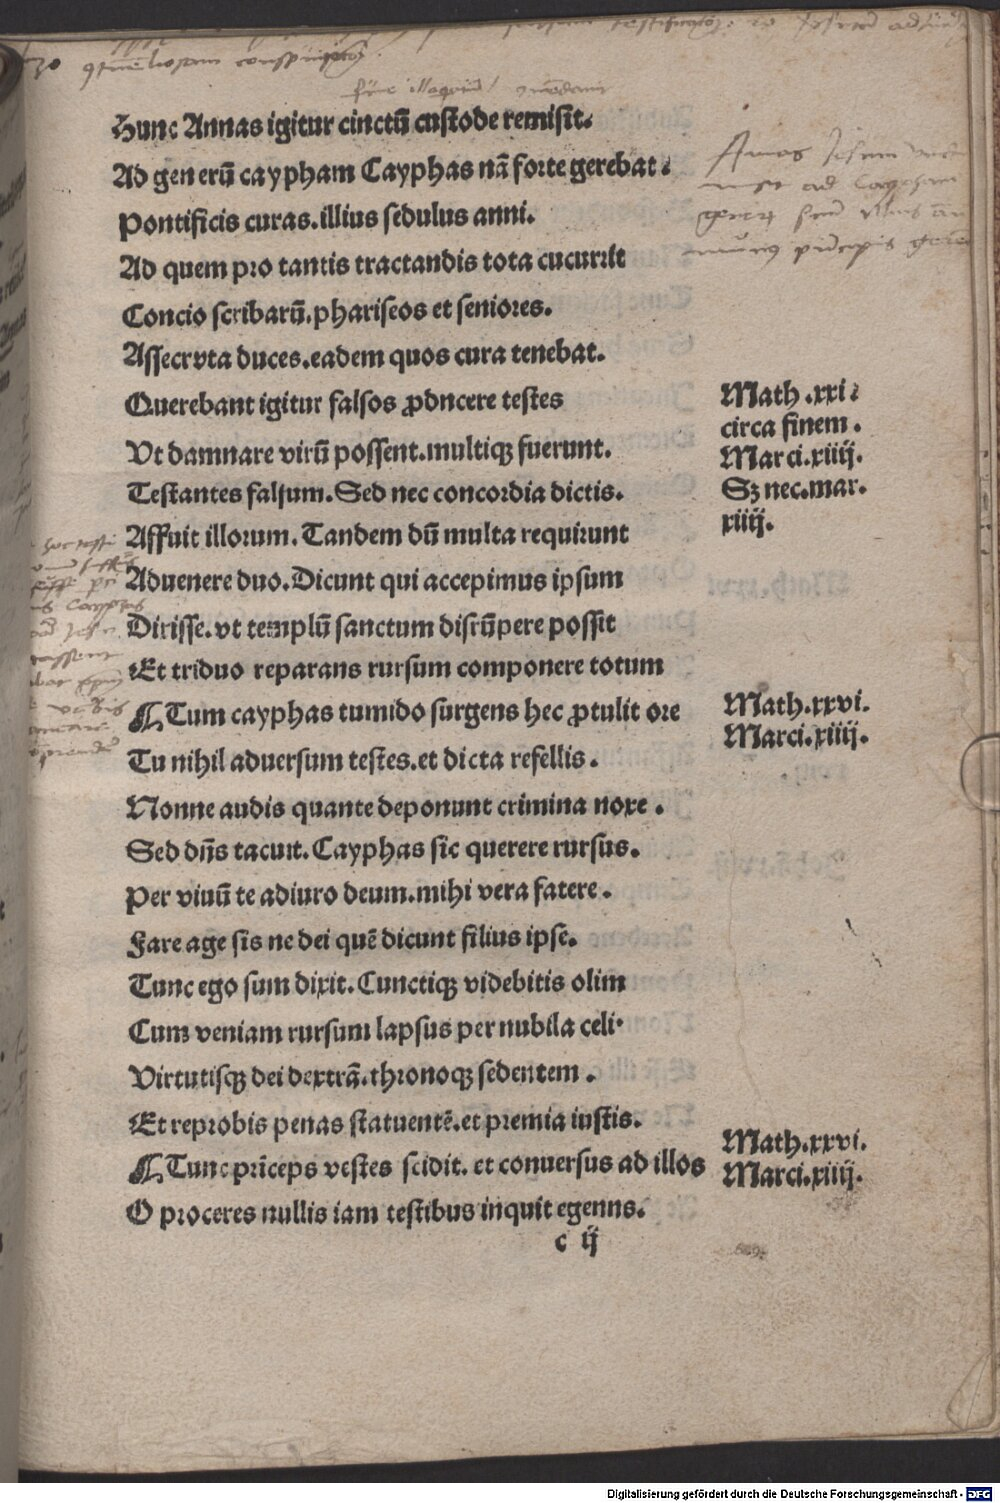 Hunc Annas igitur cinctū custode remisit.
Ad generū caypham Cayphas nā forte gerebat.
Pontificis curas.illius sedulus anni.
Ad quem pro tantis tractandis tota cucurrit
Concio scribarū.phariseos et seniores.
Assecrvta duces.eadem quos cura tenebat.
Querebant igitur falsos ꝓdncere testes
Vt damnare virū possent.multiqꝫ fuerunt.
Testantes falsum.Sed nec concordia dictis.
Affuit illorum.Tandem dū multa requirunt
Aduenere duo.Dicunt qui accepimus ipsum
Dixisse.vt templū sanctum disrūpere possit
Et triduo reparans rursum componere totum
¶Tum cayphas tumido surgens hec ꝓtulit ore
Tu nihil aduersum testes.et dicta refellis.
Nonne audis quante deponunt crimina noxe.
Sed dn̄s tacuit.Cayphas sic querere rursus.
Per viuū te adiuro deum.mihi vera fatere.
Fare age sis ne dei quē dicunt filius ipse.
Tunc ego sum dixit.Cunctiqꝫ videbitis olim
Cum veniam rursum lapsus per nubila celi.
Virtutisqꝫ dei dextrā.thronoqꝫ sedentem.
Et reprobis penas statuentē.et premia iustis.
¶Tunc prīceps vestes scidit. et conuersus ad illos
O proceres nullis iam testibus inquit egenns.
c ij
Math.xxi.
circa finem.
Marci.xiiij.
Sꝫ nec.mar.
xiiij.
Math.xxvi.
Marci.xiiij.
Math.xxvi.
Marci.xiiij.
Digitalisierung gefördert durch die Deutsche Forschungsgemeinschaft - DFG